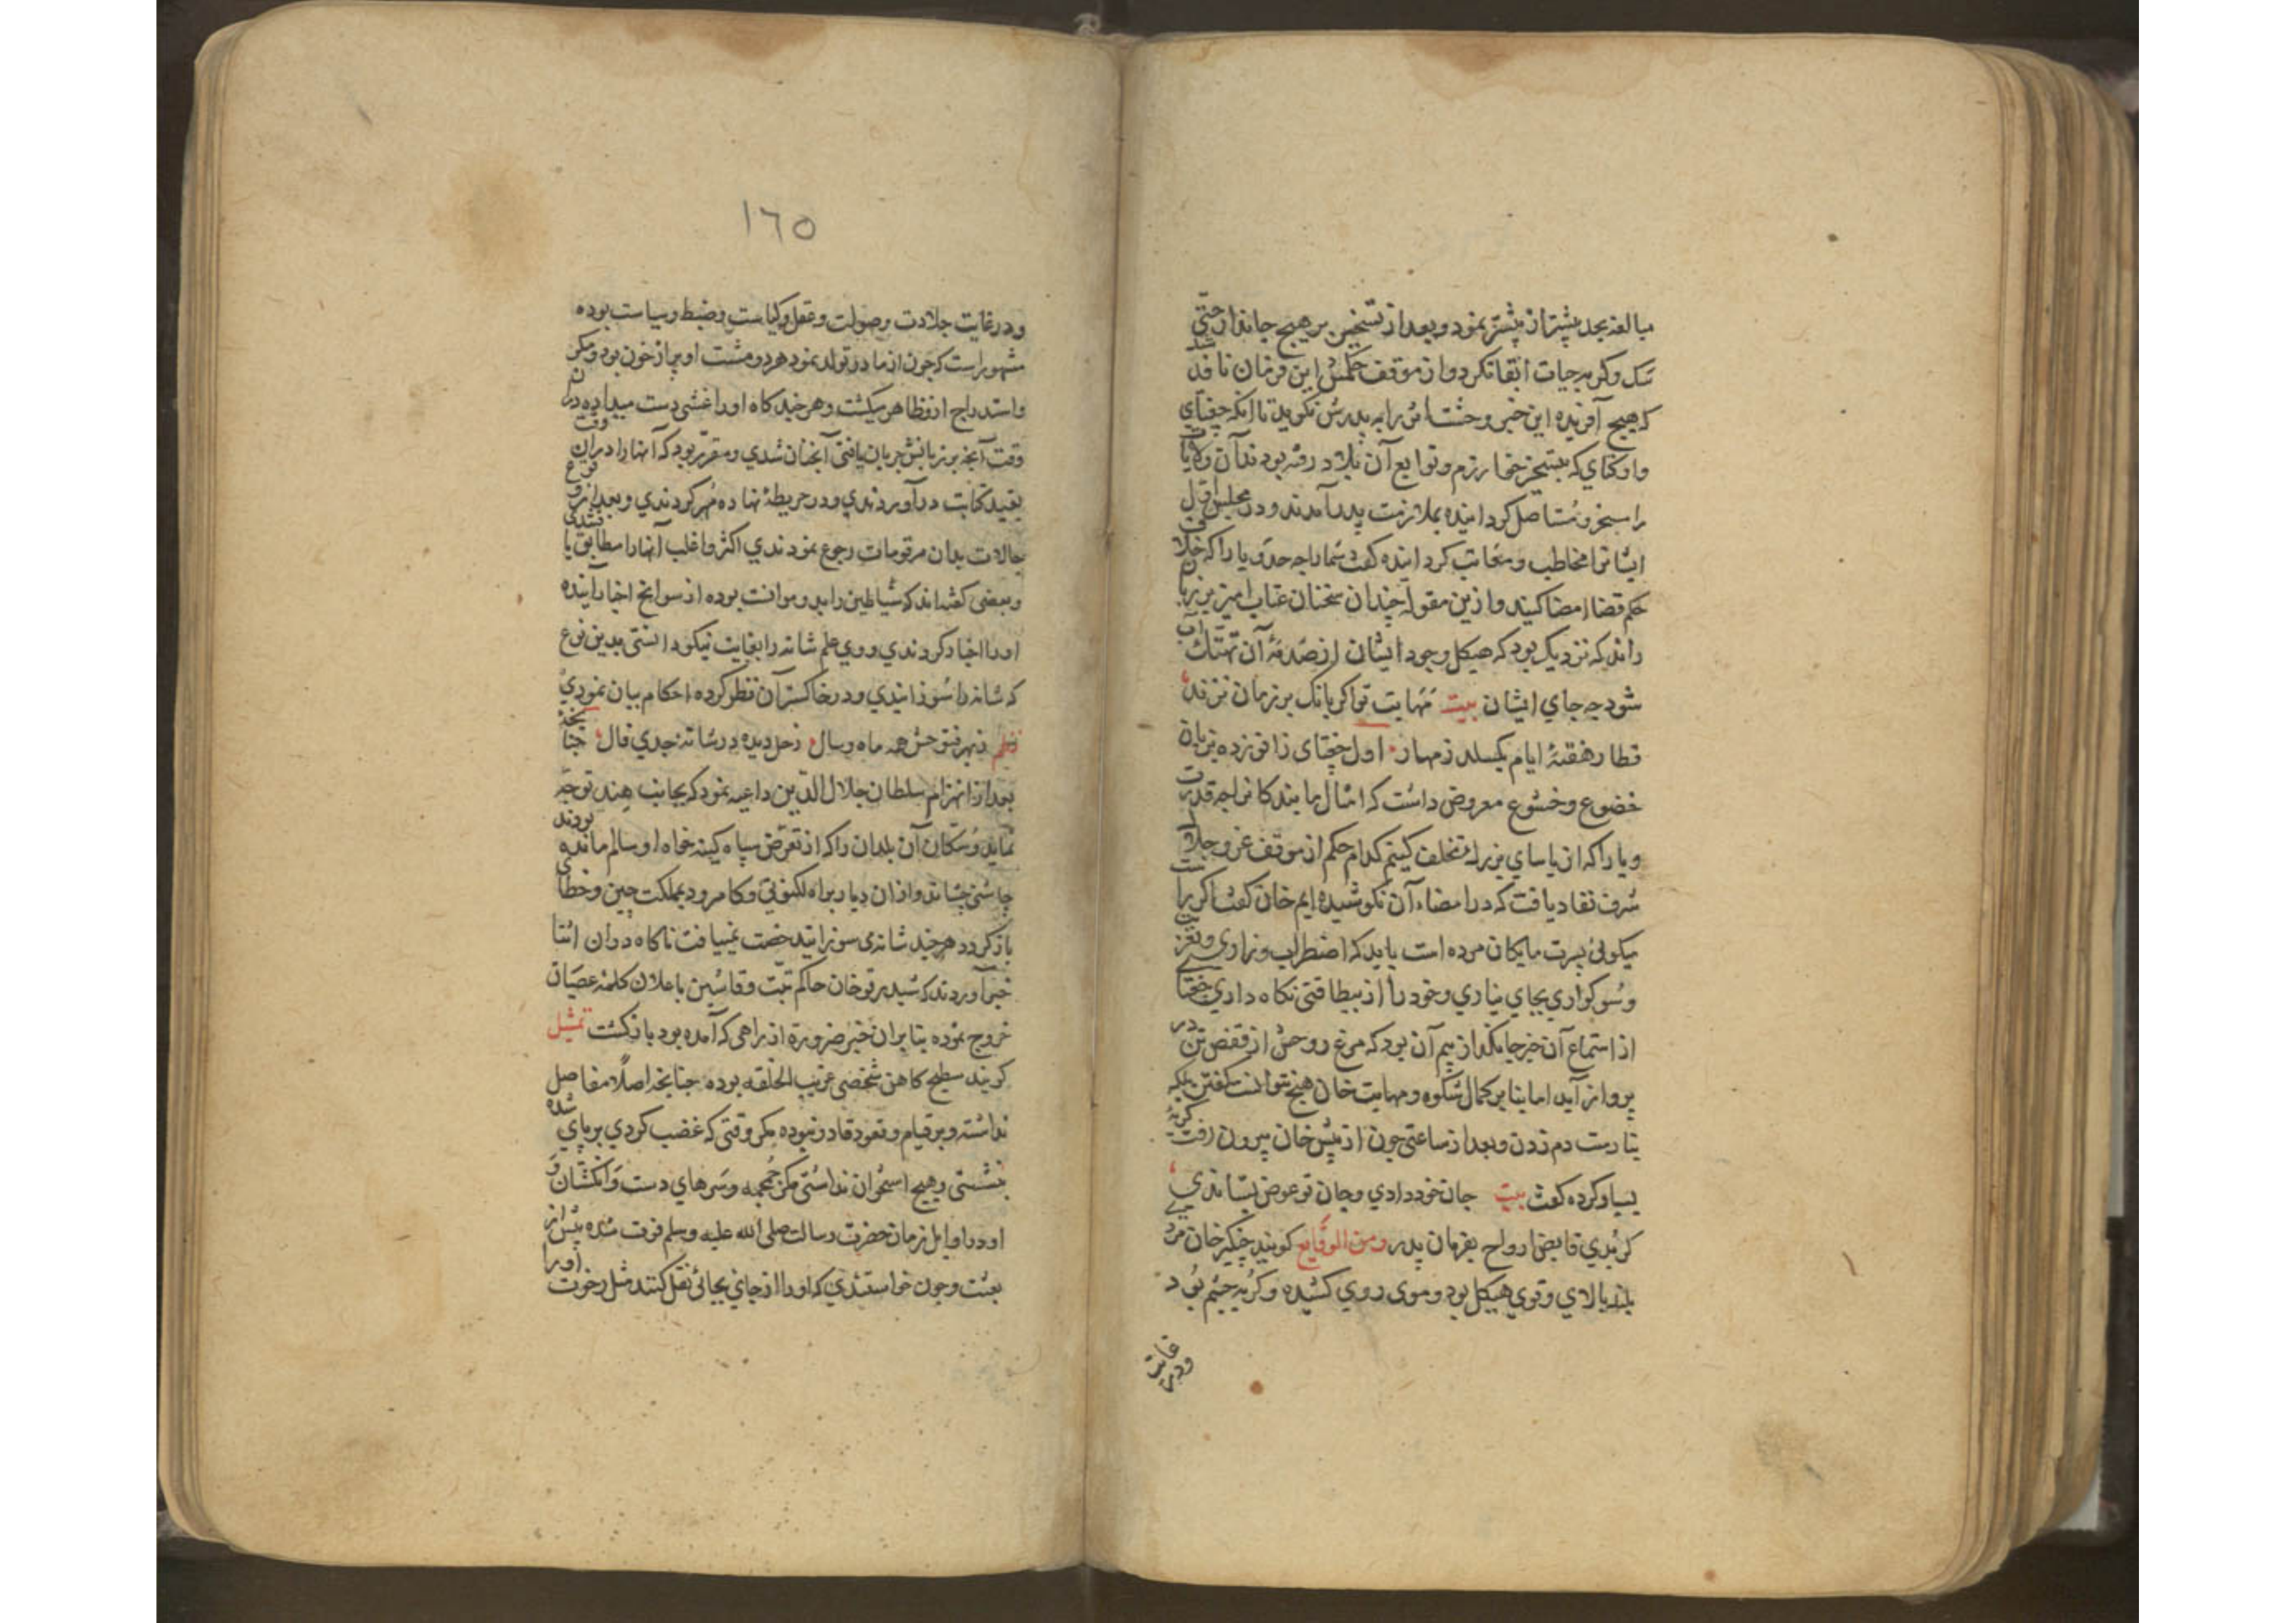 مبالغه بحد بیشتر از پیشتر نمود و بعد از تسخیر بر هیچ جاندار حتی
سک و کربه جیات ابقا نکرد و از موقف حکمش این فرمان نافذ شد
که هیچ آفریده این خبر وحشت اثر را به پدرش نکوید تا انکه چغتای
و اوکتای که بتسخیر خوارزم و توابع آن بلاد رفته بودند آن ولایات
را مسخر و مستاصل کردانیده بملازمت پدر آمدند و در مجلس اول
ایشانرا مخاطب و معاتب کردانیده کفت شما را چه حد و یارا که خلاف
حکم قضا امضا کنید و ازین مقوله چندان سخنان عتاب امیز بر زبان
راند که نزدیک بود که هیکل وجود ایشان از صدمهٔ آن تهتک آب
شود چه جای ایشان بیت مهابت تو اکر بانک بر زمان نزند
قطار هفتهٔ ایام بکسلد ز مهار اول چغتای زانو زده بزبان
خضوع و خشوع معروض داشت که امثال ما بندکانرا چه قدرت
و یارا که از یاسای بزرک تخلف کنیم کدام حکم از موقف عز و جلال
شرف نفاد یافت که در امضاء آن نکوشیده ایم خان کفت اکر راست
میکوئی پسرت مایکان مرده است باید که اضطراب و زاری و تعزیت
و سوکواری بجای نیاری و خود را از بیطاقتی نکاه داری چغتای
از استماع آن خبر جانکداز بیم آن بود که مرغ روحش از قفص تن در
پرواز آید اما بنا بر کمال شکوه و مهابت خان هیچ نتوانست کفتن بلکه
نیارست دم زدن و بعد از ساعتی چون از پیش خان بیرون رفت کریهٔ
بسیار کرده کفت بیت جان خود دادی و جان تو عوض بستاندی
کر بدی قابض ارواح بفرمان پدر ومن الوقایع کویند چنکیز خان مردی
بلند بالای و قوی هیکل بود و موی روی کشیده و کربه چشم بود
ودر غایت
١٦٥
و در غایت جلادت و صولت و عقل و کیاست و ضبط و سیاست بوده
مشهور است که چون از مادر تولد نمود هر دو مشت او پر از خون بود و مکر
و استدراج از و ظاهر میکشت و هر چند کاه او را غشی دست میداد و در آن
وقت آنچه بر زبانش جریان یافتی آنچنان شدی و مقرر بود که آنها را در آن وقت
بقید کتابت در آوردندی و در خریطهٔ نهاده مهر کردندی و بعد از وقوع
حالات بدان مرقومات رجوع نمودندی اکثر و اغلب آنها را مطابق یافتندی
و بعضی کفته اند که شیاطین را بد و موافقت بوده از سوانح اخبار آینده
او را اخبار کردندی و وی علم شانه را بغایت نیکو دانستی بدین نوع
که شانه را سوزانیدی و در خاکستر آن نظر کرده احکام بیان نمودی
نظم زحل دیده در شانهٔ جدی فال چنانچه
بعد از انهزام سلطان جلال الدین داعیه نمود که بجانب هند توجه
نماید و سکان آن بلدان را که از تعرض سپاه کینه خواه او سالم مانده بودند
چاشنی چشاند و از ان دیار براه لکنوتی و کامرود بمملکت چین و خطای
باز کردد هر چند شانه می سوزانید رخصت نمییافت ناکاه در ان اثنا
خبر آوردند که شیدرقو خان حاکم تبت و قاشین باعلان کلمهٔ عصیان
خروج نموده بنا بر ان خبر ضرورة از راهی که آمده بود بازکشت تمثیل
کویند سطیح کاهن شخصی غریب الخلقه بوده چنانچه اصلا مفاصل
نداشته و بر قیام و قعود قادر نبوده مکر وقتی که غضب کردی بر پای شده
بنشستی و هیچ استخوان نداشتی مکر جمجمه و سرهای دست و انکشتان و
او در اوایل زمان حضرت رسالت صلی الله علیه وسلم فوت شده پیش از
بعثت و چون خواستندی که او را از جائی بجائی نقل کنند مثل رخوت او را